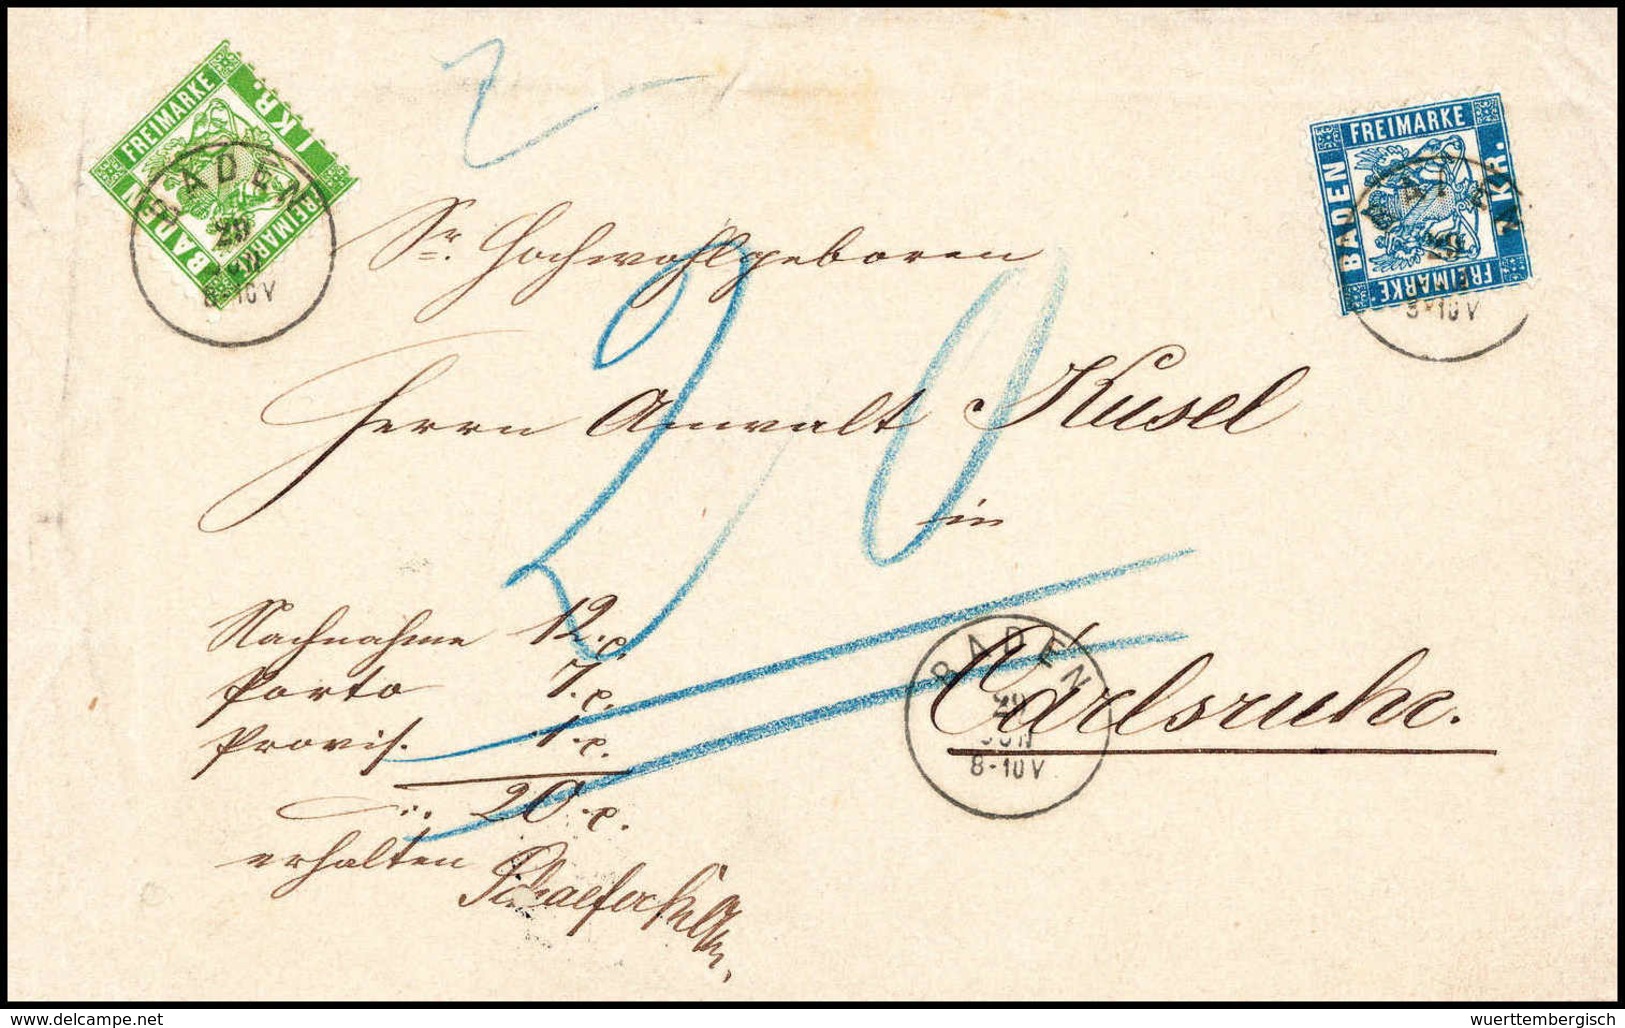 FREIMARKE
BADEN
1 KR.
FREIMARKE
BADEN
29
JUN
8-10V
2
FREIMARKE
BADEN
7 KR.
FREIMARKE.
BADEN
29
8-10V
Sr. Hochwohlgeboren
Herrn Anwalt Kusel
20
in
Carlsruhe.
BADEN
29
JUN
8-10V
Nachnahme 12.x.
Porto 7.x.
Provis. 1.x.
20.x.
erhalten
delcampe.net
wuerttembergisch